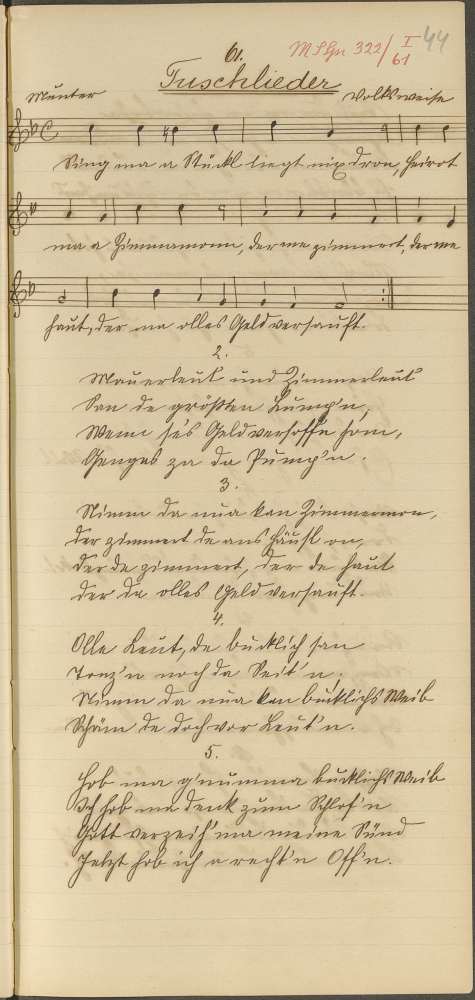 61.
MSGr 322/I 61
44
Tuschlieder
Munter
Volksweise
Sing ma a Stückl liegt nix dron, heirot
ma a Zimmamonn, der me zimmert, der me
haut, der ma olles Geld versauft.
2.
Mauerleut und Zimmerleut
San de größten Lump'n,
Wenn sé's Geld versoff'n hom,
Genga's za da Pump'n.
3.
Nimm da nua kan Zimmermon,
der zimmert de ans Häusl on,
der de zimmert, der de haut
der da olles Geld versauft.
4.
Olle Leut, de bucklich san
Tonz'n noch da Seit'n,
Nimm da nua kan bucklichs Weib
Schäm de doch vor Leut'n.
5.
Hob ma g'numma bucklichs Weib
Ich hob ma denk zum Schlof'n
Gott verzeih' ma meine Sünd
Jetzt hob ich a recht'n Off'n.